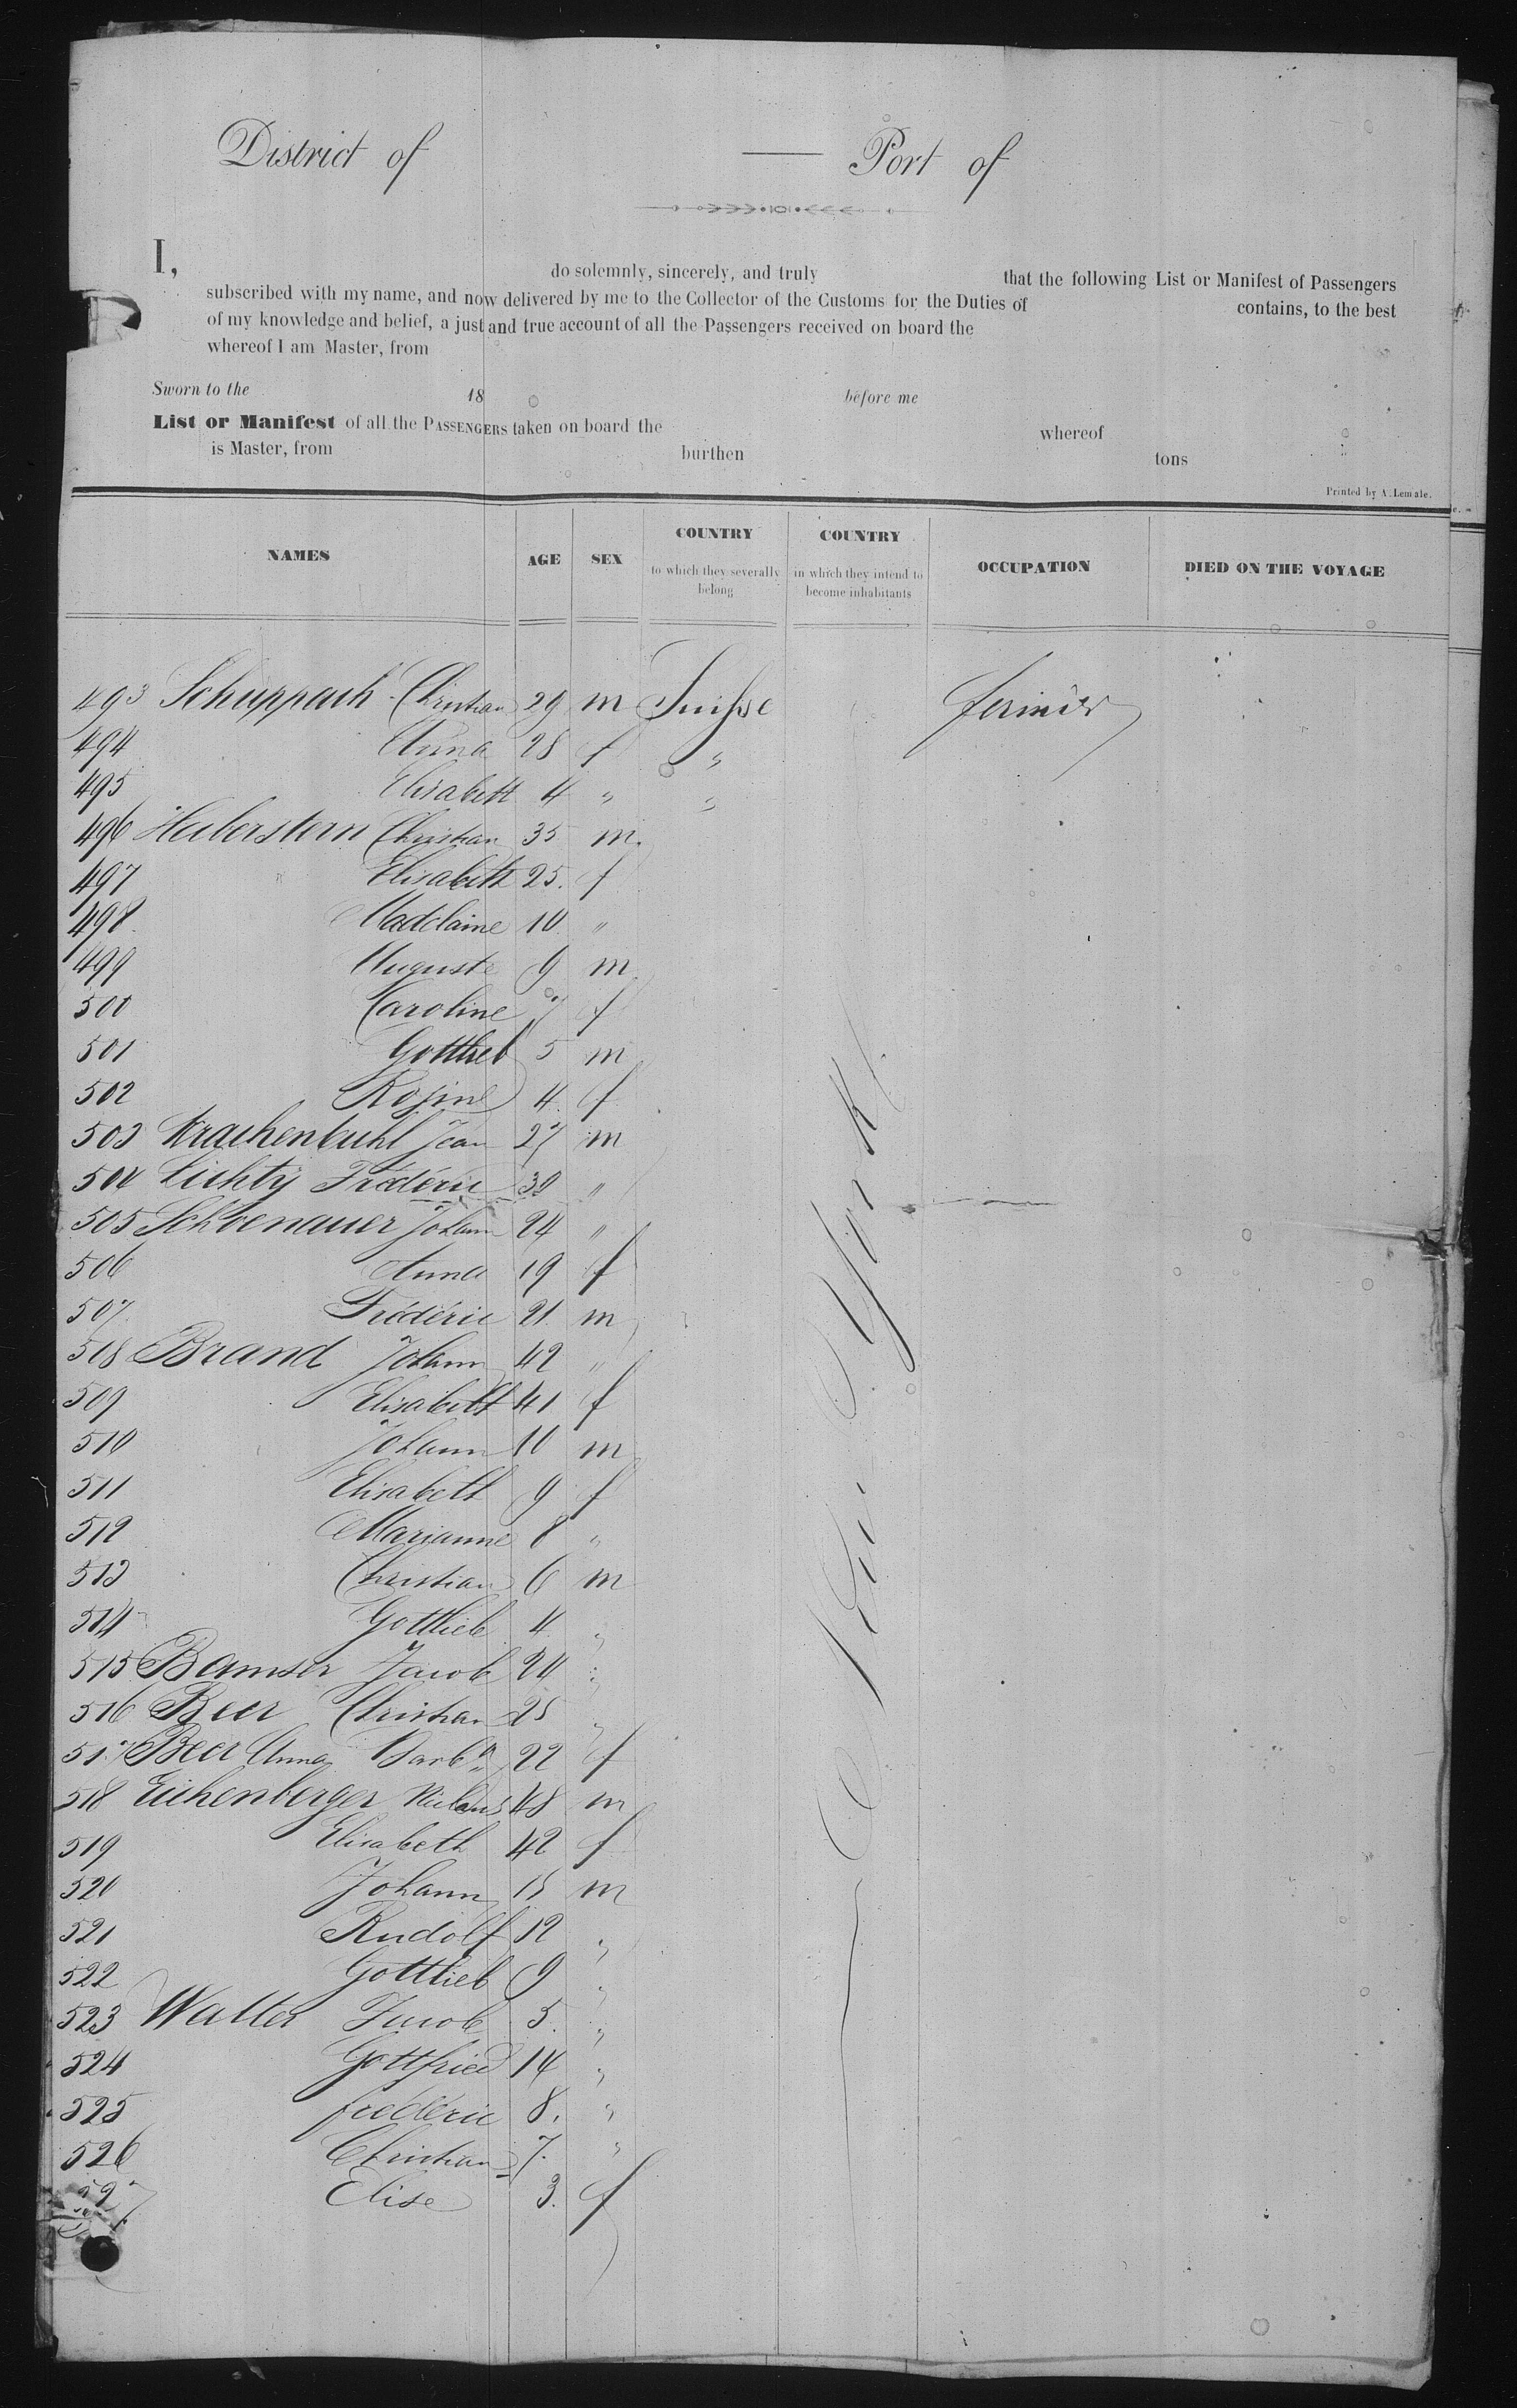 District of — Port of
I, do solemnly, sincerely, and truly that the following List or Manifest of Passengers
subscribed with my name, and now delivered by me to the Collector of the Customs for the Duties of contains, to the best
of my knowledge and belief, a just and true account of all the Passengers received on board the
whereof I am Master, from
Sworn to the 18 before me
List or Manifest of all the PASSENGERS taken on board the whereof
is Master, from burthen tons
Printed by A. Lemale.
NAMES AGE SEX COUNTRY to which they severally belong COUNTRY in which they intend to become inhabitants OCCUPATION DIED ON THE VOYAGE
493 Schuppach Christian 29 m Suisse farmer
494 Anna 28 f "
495 Elisabeth 4 " "
496 Haberstern Christian 35 m
497 Elisabeth 25. f
498 Madelaine 10 "
499 Auguste 9 m
500 Caroline 7 f
501 Gottlieb 5 m
502 Rosine 4 f
503 Krachenbuhl Jean 27 m
504 Lichty Frédéric 39 "
505 Schoenauer Johann 24 "
506 Anna 19 f
507 Frédéric 21. m
508 Brand Johann 42 "
509 Elisabeth 41 f
510 Johann 10 m
511 Elisabeth 9 f
512 Marianne 8 "
513 Christian 6 m
514 Gottlieb 4 "
515 Bamser Jacob 24 "
516 Beer Christian 25 "
517 Beer Anna Barba 22 f
518 Eichenberger Niclaus 48 m
519 Elisabeth 42 f
520 Johann 15 m
521 Rudolf 12 "
522 Gottlieb 9 "
523 Walter Jacob 5. "
524 Gottfried 14 "
525 frédéric 8. "
526 Christian 7. "
527 Elise 3. f
York